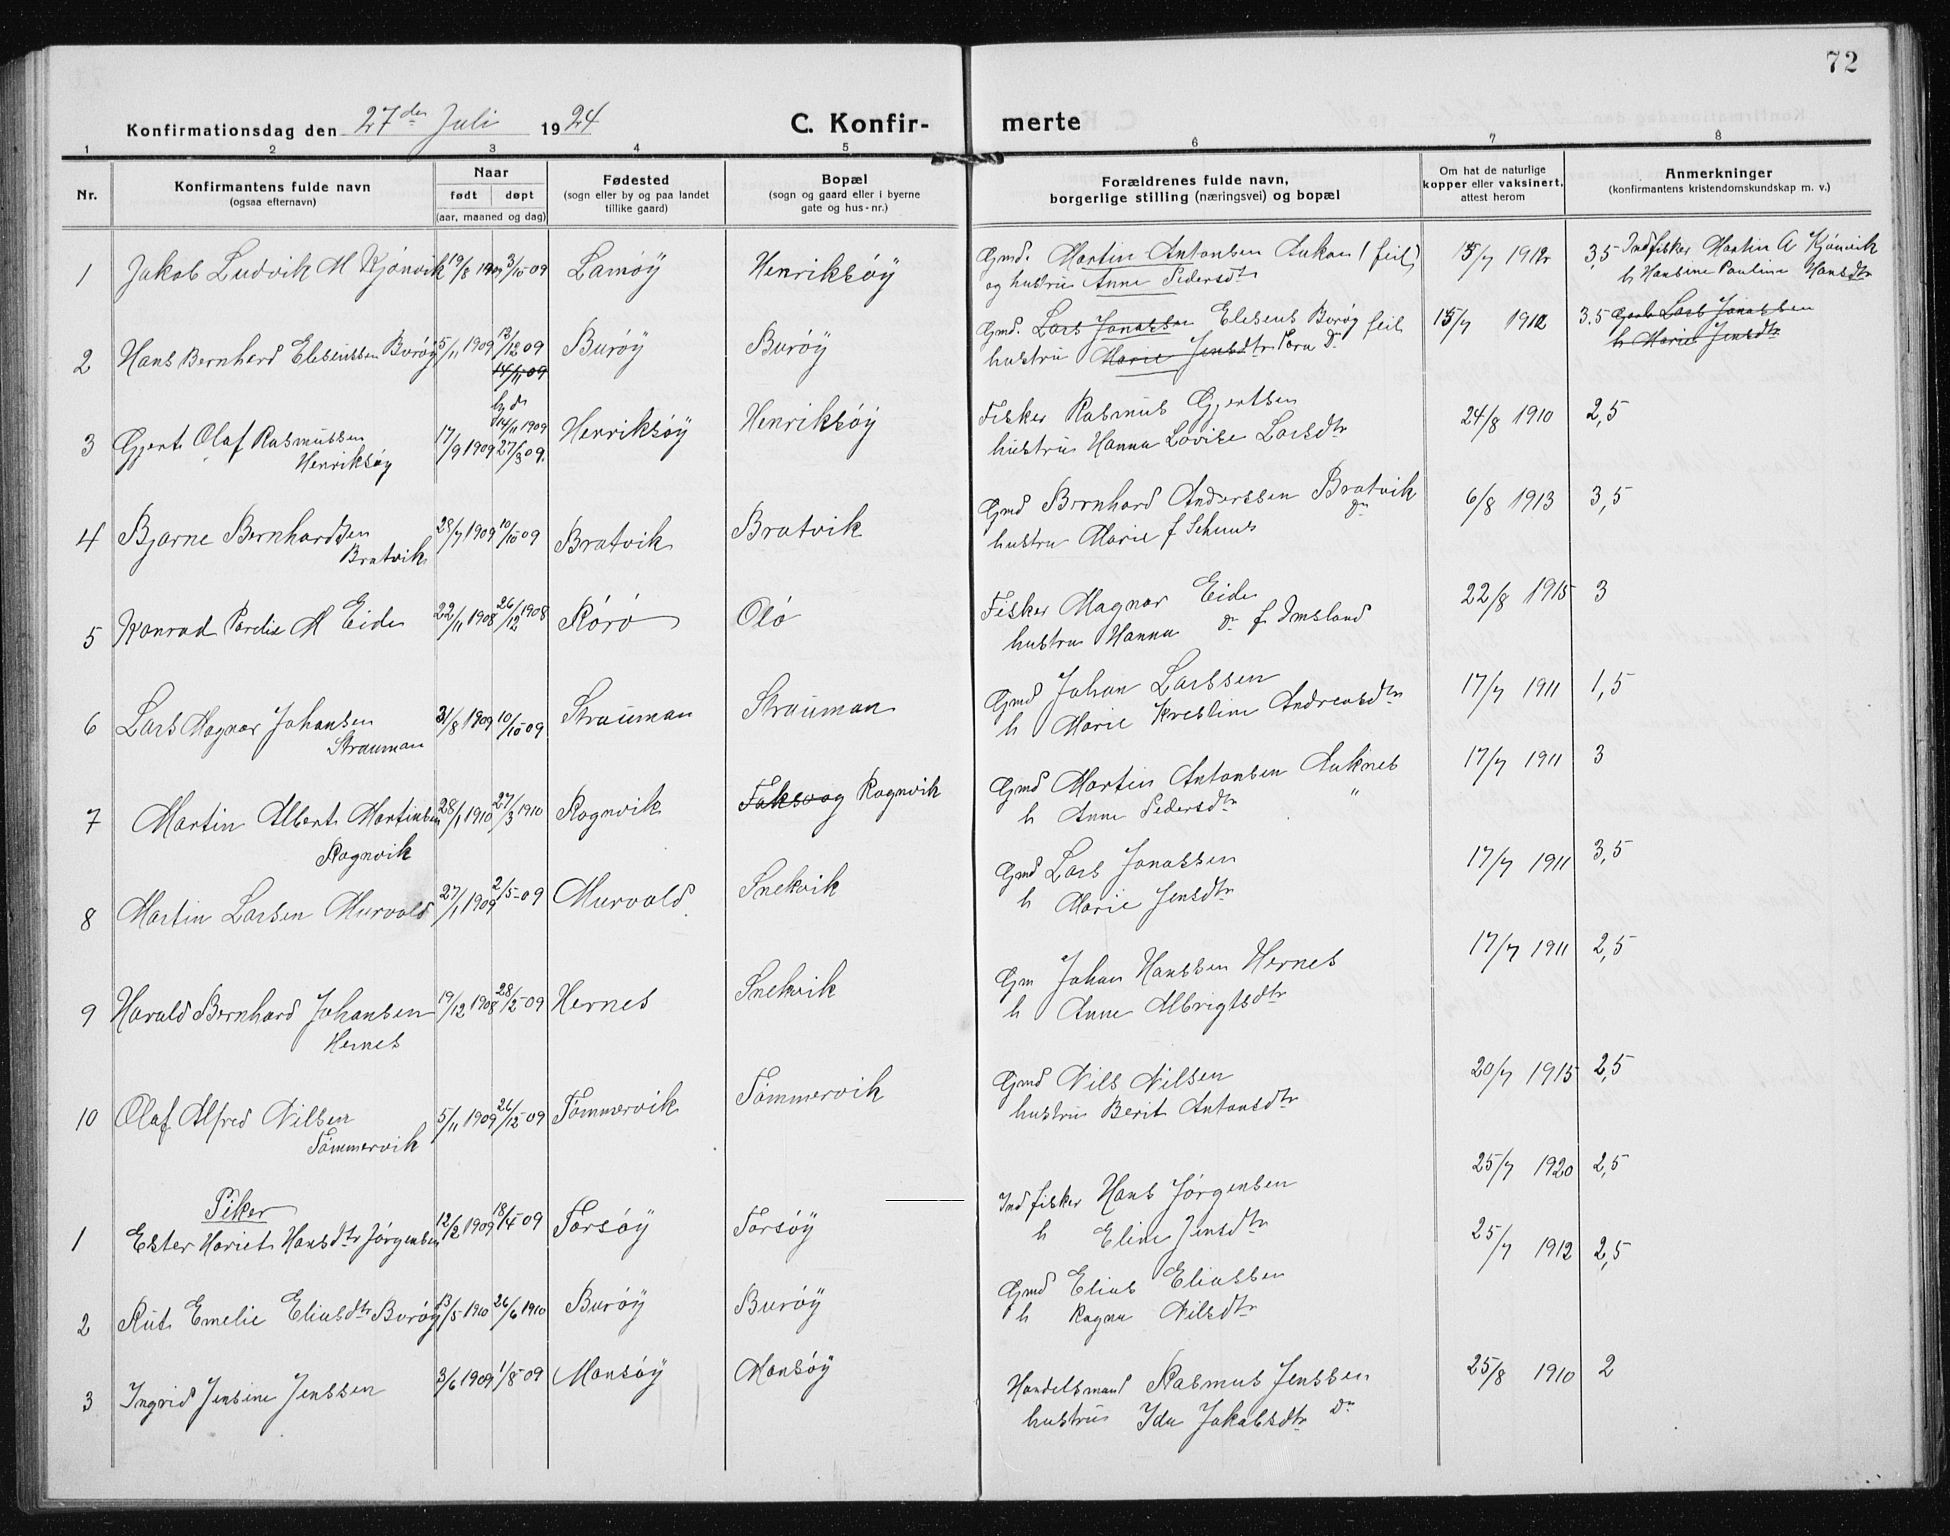 72
Konfirmationsdag den 27de Juli 1924
C. Konfir-
merte
1 2 3 4 5 6 7 8
Nr.
Konfirmantens fulde navn
(ogsaa efternavn)
Naar
født døpt
(aar, maaned og dag)
Fødested
(sogn eller by og paa landet
tillike gaard)
Bopæl
(sogn og gaard eller i byerne
gate og hus-nr.)
Forældrenes fulde navn,
borgerlige stilling (næringsvei) og bopæl
Om hat de naturlige
kopper eller vaksinert,
attest herom
Anmerkninger
(konfirmantens kristendomskundskap m. v.)
1 Jakob Ludvik M Kjönvik 19/8 1909 3/10 09 Lamöy Henriksöy
Gmd. Martin Antonsen Auknes (feil) 15/7 1912 3,5 Indfisker Martin A Kjönvik
og hustru Anne Pedersdtr
h Hansine Pauline Hansdtr
2 Hans Bernhard Eleseussen Buröy 5/11 1909 12/12 09 Buröy Buröy
14/11 09
Gmd. Lars Jonassen Eleseus Buröy feil 15/7 1912 3.5 Gmd Lars Jonassen
hustru Marie Jensdtr Tora Do
h Marie Jensdtr
3 Gjert Olaf Rasmussen 17/9 1909 Henriksöy Henriksöy
Henriksöy
14/11 1909
Fisker Rasmus Gjertsen 24/8 1910 2,5
hustru Hanna Lovise Larsdtr
4 Bjarne Bernhardsen 28/7 1909 10/10 09 Bratvik Bratvik
Bratvik
Gmd Bernhard Anderssen Bratvik 6/8 1913 3,5
hustru Marie f
5 Konrad M Eide 22/11 1908 26/12 1908 Rörö Olö
Fisker Magnar Eide 22/8 1915 3
hustru Hanna Do f Imsland
6 Lars Magnar Johansen 31/8 1909 10/10 09 Strauman Strauman
Strauman
Gmd Johan Larssen 17/7 1911 1,5
h Marie Kristine Andreasdtr
7 Martin Albert Martinsen 28/1 1910 27/3 1910 Rognvik Foksvog Rognvik
Rognvik
Gmd Martin Antonsen Auknes 17/7 1911 3
h Anne Pedersdtr "
8 Martin Larsen Murvold 27/1 1909 2/5 09 Murvold Snekvik
Gmd Lars Jonassen 17/7 1911 3,5
h Marie Jensdtr
9 Harald Bernhard Johansen 19/12 1908 28/2 09 Hernes Snekvik
Hernes
Gm Johan Hanssen Hernes 17/7 1911 2,5
h Anne Albrigtsdtr
10 Olaf Alfred Nilsen 5/11 1909 26/12 09 Tömmervik Tömmervik
Tömmervik
Gmd Nils Nilsen 20/7 1915 2,5
hustru Berit Antonsdtr
Piker
1 Ester Hariet Hansdtr Jörgensen 12/2 1909 18/4 09 Forsöy Forsöy
Ind fisker Hans Jörgensen 25/7 1920 2,5
h Eline Jensdtr
2 Rut Emelie Eliasdtr Buröy 13/5 1910 26/6 1910 Buröy Buröy
Gmd Elias Eliassen 25/7 1912 2,5
h Ragna Nilsdtr
3 Ingrid Jensine Jenssen 3/6 1909 1/8 09 Monsöy Monsöy
Handelsmand Rasmus Jenssen 25/8 1910 2
hustru Ida Jakobsdtr Do